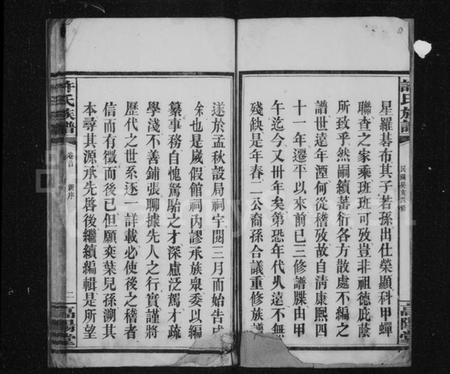 許氏族譜
民國癸亥六修
高陽堂
星羅碁布其子若孫出仕榮顯科甲蟬
聯查之家乘班班可攷豈非祖德庇蔭
所致乎然嗣續蕃衍各方散處不編之
譜世遠年湮何從稽攷故自清康熙四
十一年遷平以來前已三修譜牒由甲
午迄今又卅年矣弟恐年代乆遠不無
殘缺是年春二公裔孫合議重修族譜
遂於孟秋設局祠宇閱三月而始告成
余也是嵗假館祠內謬承族衆委以編
纂事務自愧駑駘之才深慮泛駕才疏
學淺不善鋪張聊據先人之行實謹將
歷代之世系逐一詳載必使後之稽者
信而有徵而後已但願奕葉兒孫溯其
本尋其源承先啓後繼續編輯是所望
許氏族譜
卷首
新序
二
高陽堂